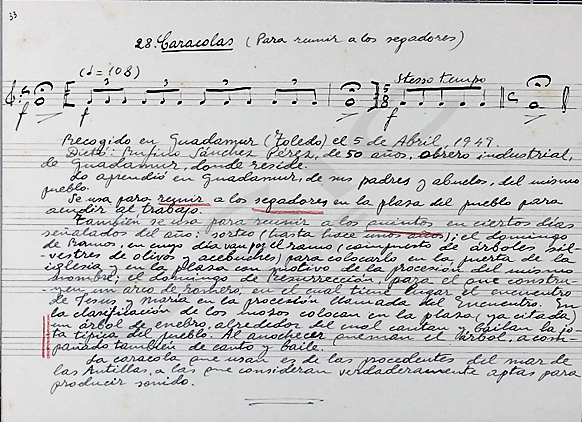 33
28. Caracolas (Para reunir a los segadores)
(♩=108)
3 3 3 3
Stesso tempo
5
8
f f f
Recogido en Guadamur (Toledo) el 5 de Abril, 1949.
Dictó: Rufino Sánchez Pérez, de 50 años, obrero industrial,
de Guadamur, donde reside.
Lo aprendió en Guadamur, de sus padres y abuelos, del mismo
pueblo.
Se usa para reunir a los segadores en la plaza del pueblo para
acudir al trabajo.
También se usa para reunir a los quintos en ciertos días
señalados del año: sorteo (hasta hace unos años); el domingo
de Ramos, en cuyo día van por el ramo (compuesto de árboles sil-
vestres de olivos y acebuches) para colocarlo en la puerta de la
iglesia y en la plaza con motivo de la procesión del mismo
nombre; el domingo de Resurrección, para el que constru-
yen un arco de romero en el cual tiene lugar el encuentro
de Jesús y María en la procesión llamada del Encuentro. En
la clasificación de los mozos colocan en la plaza (ya citada)
un árbol de enebro, alrededor del cual cantan y bailan la jo-
ta típica del pueblo. Al anochecer queman el árbol, acom-
pañado también de canto y baile.
La caracola que usan es de las procedentes del mar de
las Antillas, a las que consideran verdaderamente aptas para
producir sonido.